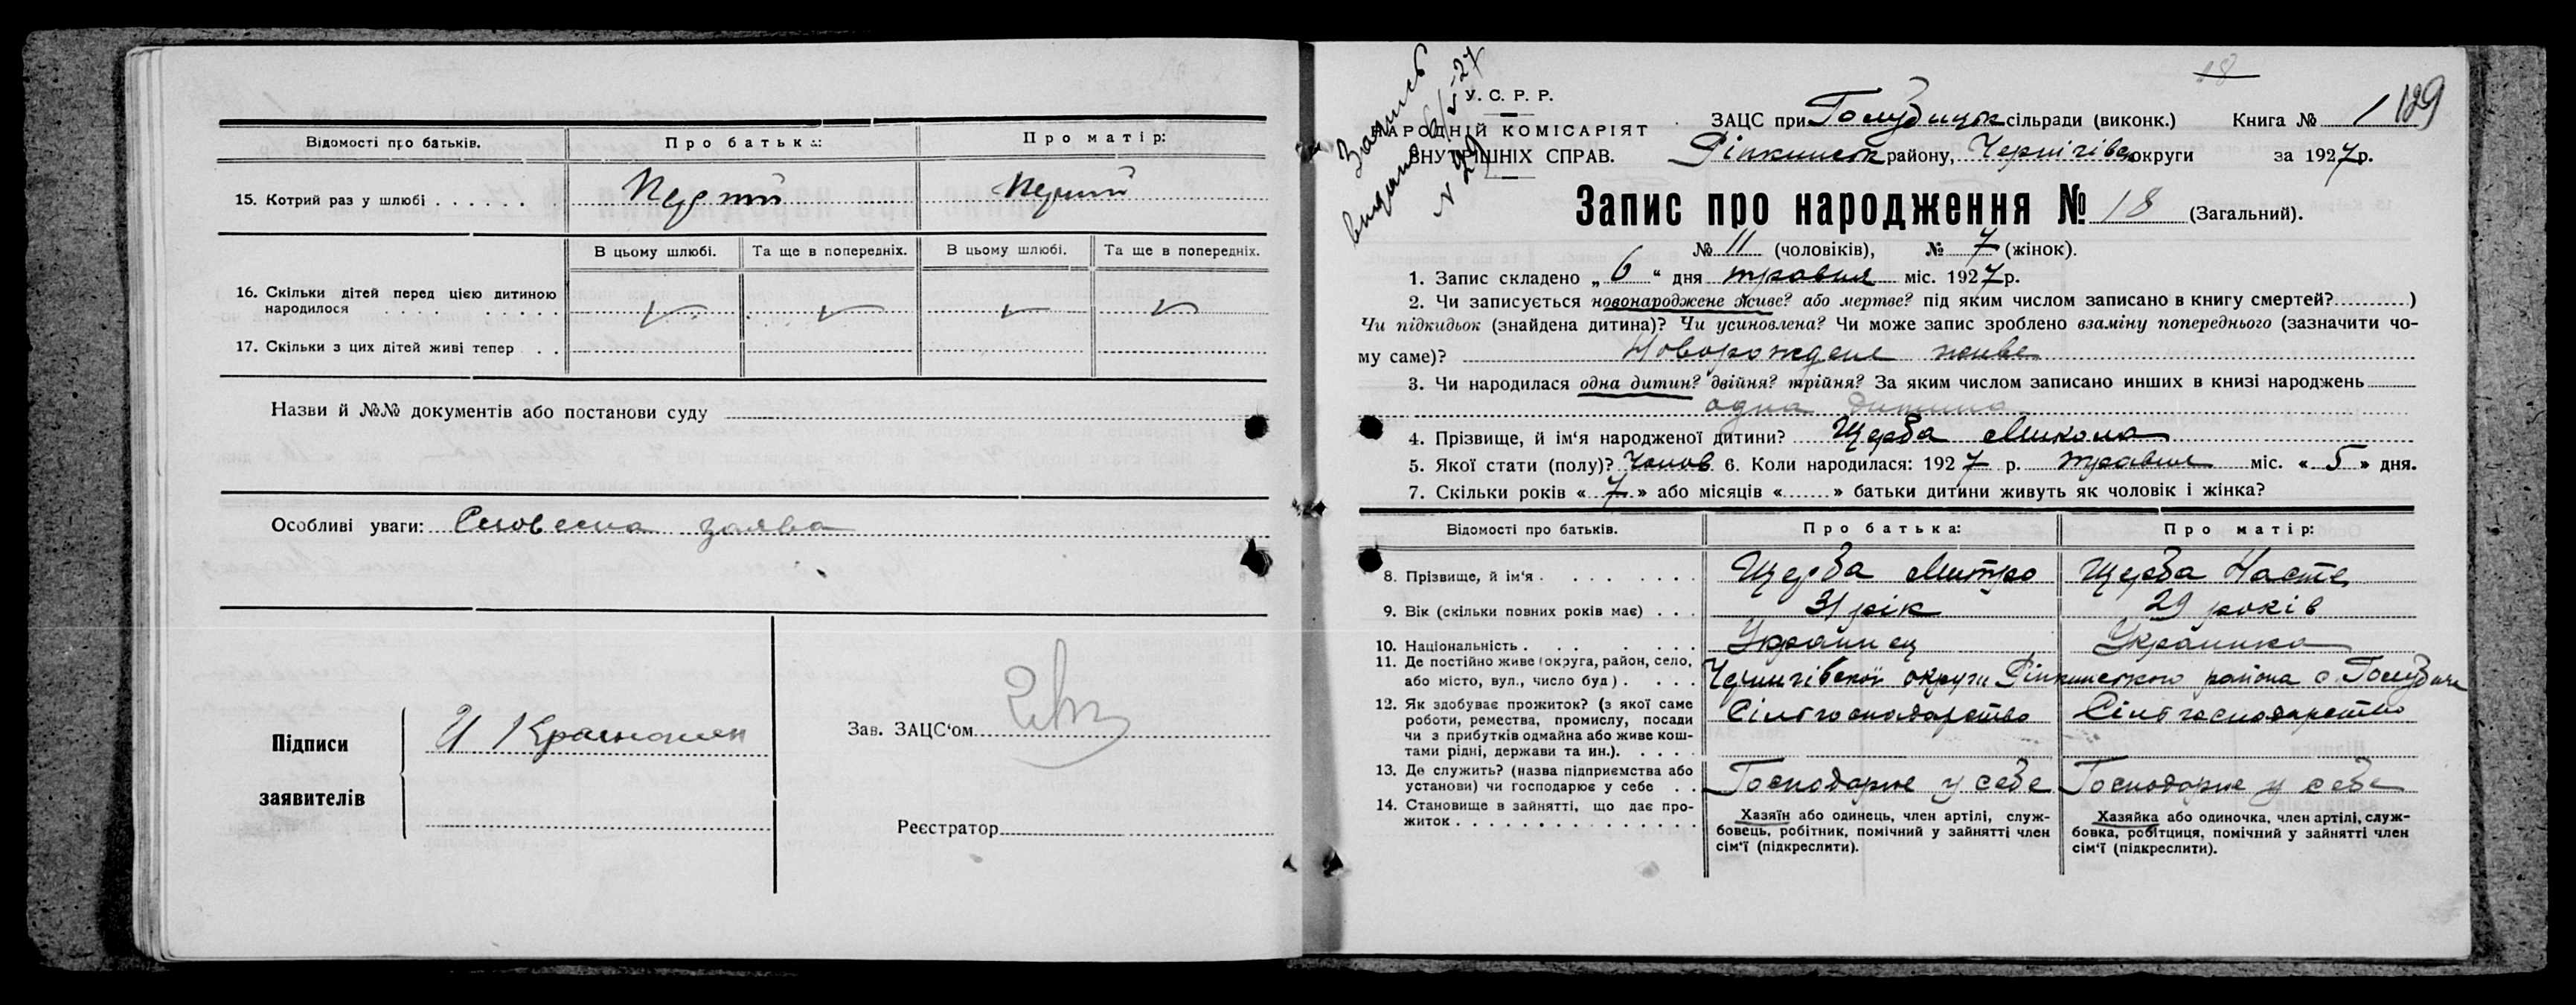 Відомості про батьків. Про батька: Про матір:
15. Котрий раз у шлюбі . . . . . . Перший Перший
В цьому шлюбі. Та ще в попередніх. В цьому шлюбі. Та ще в попередніх.
16. Скільки дітей перед цією дитиною
народилося . . . . . . . . .
17. Скільки з цих дітей живі тепер . .
Назви й №№ документів або постанови суду
Особливі уваги: Словесна заява
Підписи
заявителів
Зав. ЗАЦС'ом
Реєстратор
18
У. С. Р. Р.
НАРОДНІЙ КОМІСАРІЯТ
ВНУТРІШНІХ СПРАВ.
Запись
выдана 6/5-27
N 29
129
ЗАЦС при Голубицьк сільради (виконк.) Книга № 1
Ріпкинськ району, Чернігівс округи за 1927 р.
Запис про народження № 18 (Загальний).
№ 11 (чоловіків), № 7 (жінок).
1. Запис складено „ 6 “ дня травня міс. 1927 р.
2. Чи записується новонароджене живе? або мертве? під яким числом записано в книгу смертей?..........)
Чи підкидьок (знайдена дитина)? Чи усиновлена? Чи може запис зроблено взаміну попереднього (зазначити чо-
му саме)? Новорождене живе
3. Чи народилася одна дитин? двійня? трійня? За яким числом записано инших в книзі народжень
одна дитина
4. Прізвище, й ім'я народженої дитини? Щерба Микола
5. Якої стати (полу)? Чолов 6. Коли народилася: 1927 р. травня міс. « 5 » дня.
7. Скільки років « 7 » або місяців «.......» батьки дитини живуть як чоловік і жінка?
Відомості про батьків. Про батька: Про матір:
8. Прізвище, й ім'я . . . . . . . . Щерба Митро Щерба Настя
9. Вік (скільки повних років має) . . . 31 рік 29 років
10. Національність . . . . . . . Українец Українка
11. Де постійно живе (округа, район, село,
або місто, вул., число буд) . . . . Чернигівської округи Ріпкинського района с. Голубичі
12. Як здобуває прожиток? (з якої саме
роботи, ремества, промислу, посади
чи з прибутків одмайна або живе кош-
тами рідні, держави та ин.). . . . . Сільгосподарство Сільгосподарство
13. Де служить? (назва підприємства або
установи) чи господарює у себе . . Господарює у себе Господарює у себе
14. Становище в зайнятті, що дає про-
житок . . . . . . . . . . . . . . .
Хазяїн або одинець, член артілі, служ-
бовець, робітник, помічний у зайнятті член
сім'ї (підкреслити).
Хазяйка або одиночка, член артілі, служ-
бовка, робітциця, помічний у зайнятті член
сім'ї (підкреслити).